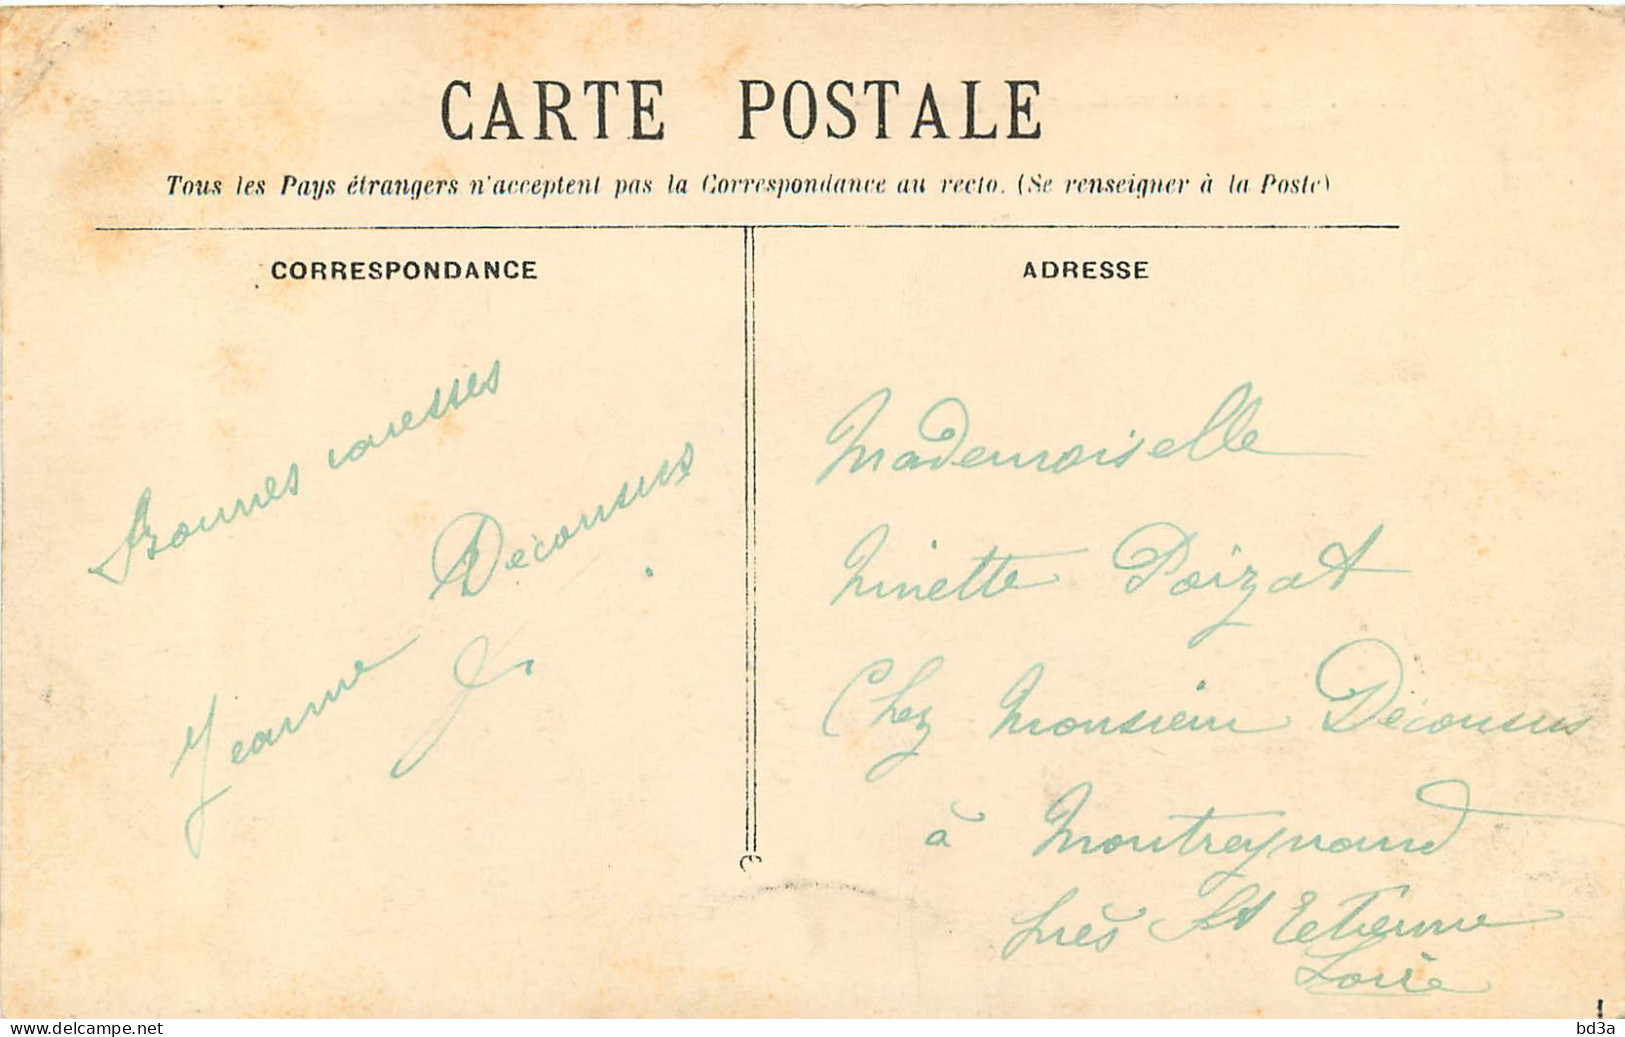 CARTE POSTALE
Tous les Pays étrangers n'acceptent pas la Correspondance au recto. (Se renseigner à la Poste)
CORRESPONDANCE
Bonnes caresses
Jeanne Décousus
ADRESSE
Mademoiselle
Ninette Poizat
Chez Monsieur Décousus
à Montreynaud
près St Etienne
Loire
delcampe.net
bd3a